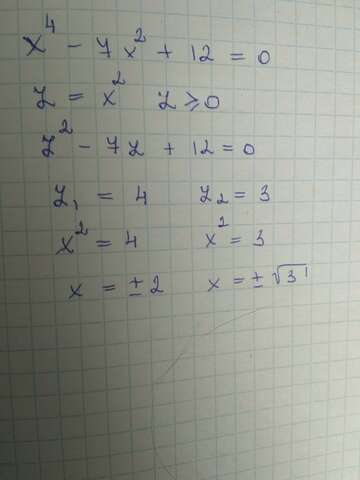 x⁴ - 7x² + 12 = 0
z = x² z ⩾ 0
z² - 7z + 12 = 0
z₁ = 4 z₂ = 3
x² = 4 x² = 3
x = ± 2 x = ± √3